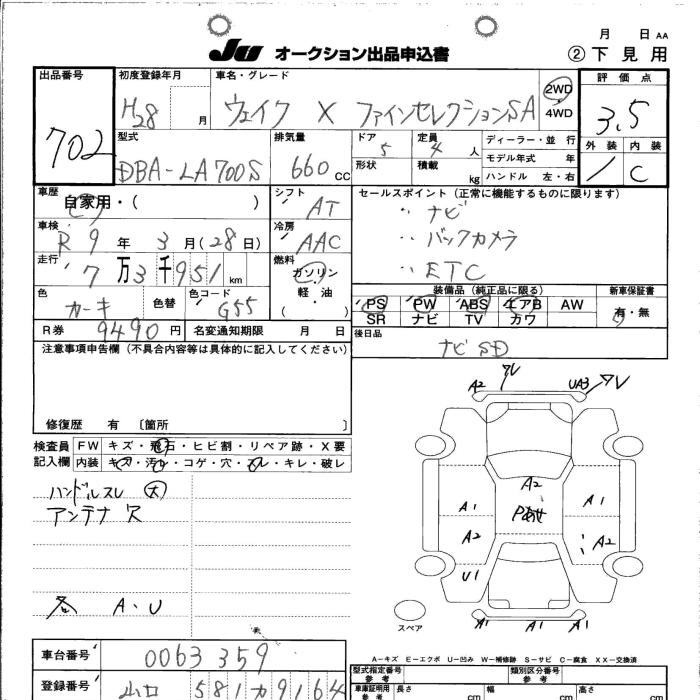 月 日 AA
JU オークション出品申込書 ② 下見用
出品番号 初度登録年月 車名・グレード 評価点
702 H28 月 ウェイク X ファインセレクションSA 2WD 4WD 3.5
型式 排気量 ドア 定員 ディーラー・並行 外装 内装
DBA-LA700S 660 cc 5 4 人 モデル年式 年 / C
形状 積載 kg ハンドル 左・右
車歴 シフト セールスポイント(正常に機能するものに限ります)
自家用・( ) AT ナビ
車検 冷房 バックカメラ
R 9 年 3 月(28日) AAC ETC
走行 燃料
7万3千951 km ガソリン 軽・油 ( )
装備品(純正品に限る) 新車保証書
色 色替 色コード PS PW ABS エアB AW 有・無
カーキ G55 SR ナビ TV カワ
R券 9490円 名変通知期限 月 日 後日品
ナビSD
注意事項申告欄(不具合内容等は具体的に記入してください)
修復歴 有 〔箇所 〕
検査員 FW キズ・飛石・ヒビ割・リペア跡・X要
記入欄 内装 キズ・汚レ・コゲ・穴・スレ・キレ・破レ
ハンドルスレ 大
アンテナ欠
各 A・U
A2 ワレ UA3 ワレ
A2
Pあせ
A1 A1
A2 A2
U1
A1 A1 A1
スペア
A-キズ E-エクボ U-凹み W-補修跡 S-サビ C-腐食 XX-交換済
車台番号 0063359
型式指定番号 参考 類別区分番号 参考
登録番号 山口 581 カ 9164
車庫証明用 参考 長さ cm 幅 cm 高さ cm